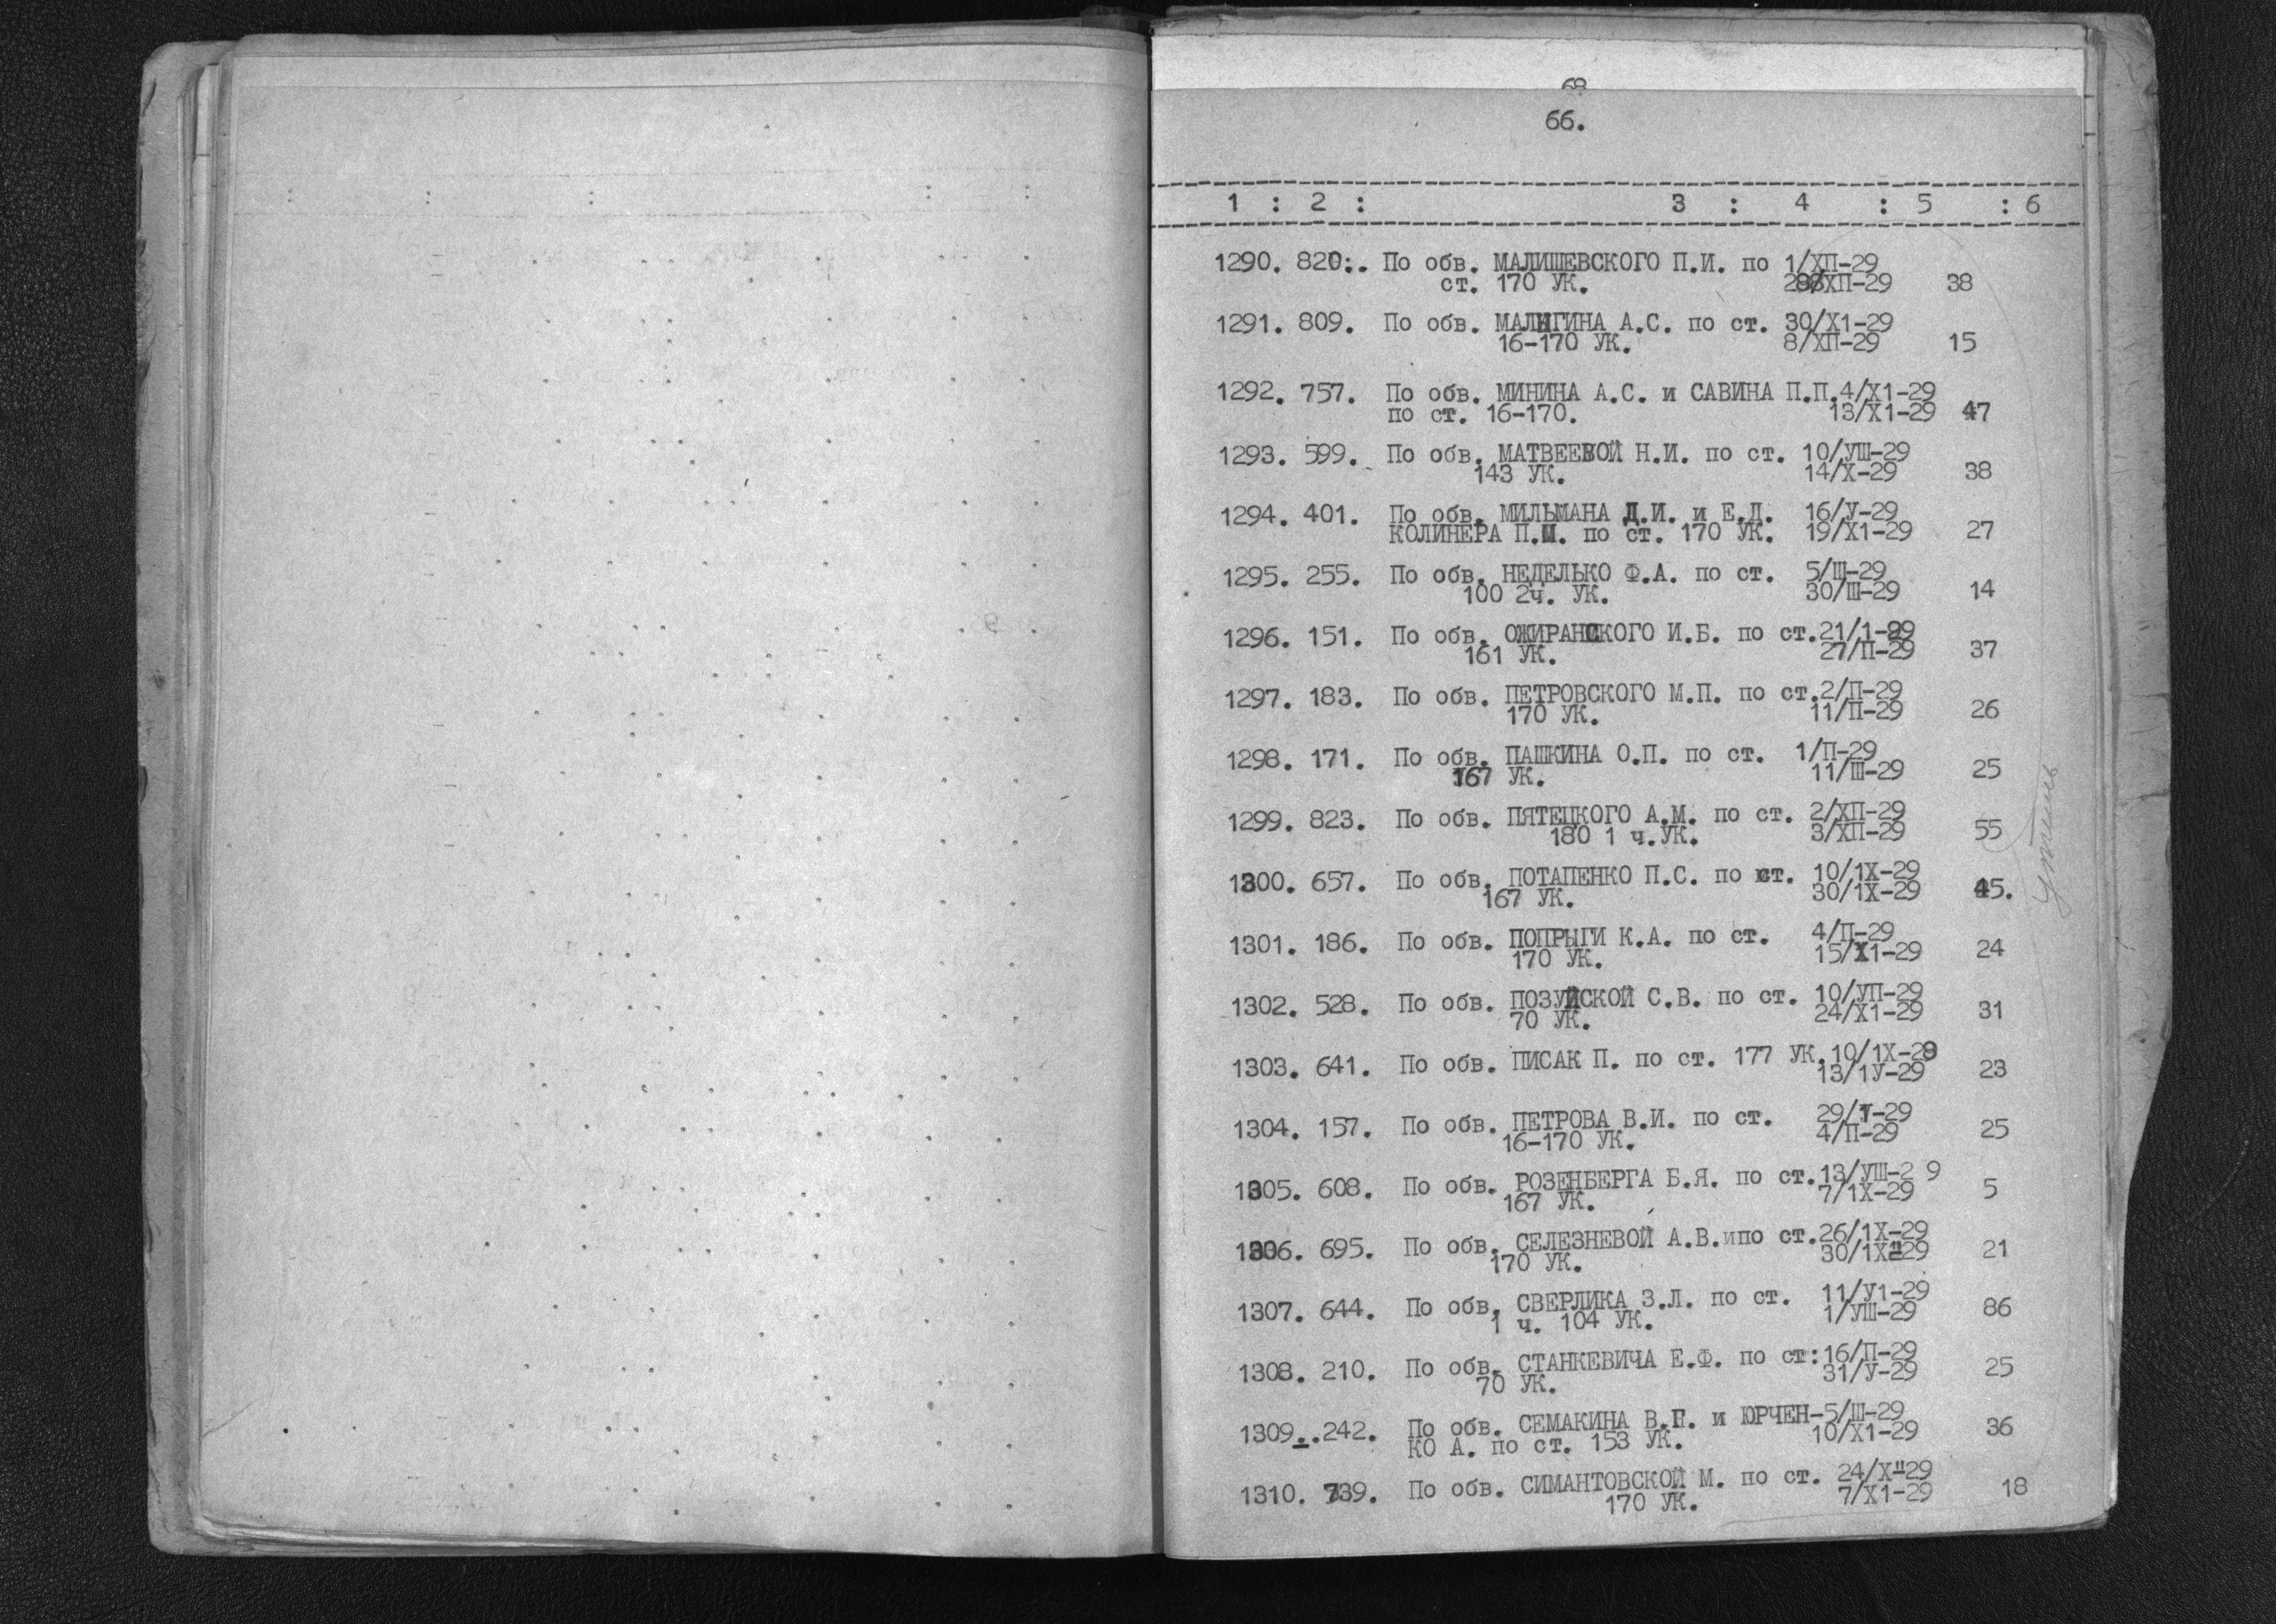 68
66.
1 : 2 : 3 : 4 : 5 : 6
1290. 820:. По обв. МАЛИШЕВСКОГО П.И. по 1/ХП-29
ст. 170 УК. /ХП-29 38
1291. 809. По обв. МАЛЫГИНА А.С. по ст. 30/Х1-29
16-170 УК. 8/ХП-29 15
1292. 757. По обв. МИНИНА А.С. и САВИНА П.П. 4/Х1-29
по ст. 16-170. 13/Х1-29 47
1293. 599. По обв. МАТВЕЕВОЙ Н.И. по ст. 10/УШ-29
143 УК. 14/Х-29 38
1294. 401. По обв. МИЛЬМАНА Д.И. и Е.Д. 16/У-29
КОЛИНЕРА П.М. по ст. 170 УК. 19/Х1-29 27
1295. 255. По обв. НЕДЕЛЬКО Ф.А. по ст. 5/Ш-29
100 2ч. УК. 30/Ш-29 14
1296. 151. По обв. ОЖИРАНСКОГО И.Б. по ст.21/1-29
161 УК. 27/П-29 37
1297. 183. По обв. ПЕТРОВСКОГО М.П. по ст.2/П-29
170 УК. 11/П-29 26
1298. 171. По обв. ПАШКИНА О.П. по ст. 1/П-29
167 УК. 11/Ш-29 25
1299. 823. По обв. ПЯТЕЦКОГО А.М. по ст. 2/ХП-29
180 1 ч.УК. 3/ХП-29 55
1300. 657. По обв. ПОТАПЕНКО П.С. по ст. 10/1Х-29
167 УК. 30/1Х-29 45.
1301. 186. По обв. ПОПРЫГИ К.А. по ст. 4/П-29
170 УК. 15/Х1-29 24
1302. 528. По обв. ПОЗУЙСКОЙ С.В. по ст. 10/УП-29
70 УК. 24/Х1-29 31
1303. 641. По обв. ПИСАК П. по ст. 177 УК.10/1Х-29
13/1У-29 23
1304. 157. По обв. ПЕТРОВА В.И. по ст. 29/1-29
16-170 УК. 4/П-29 25
1305. 608. По обв. РОЗЕНБЕРГА Б.Я. по ст.13/УШ-2 9
167 УК. 7/1Х-29 5
1306. 695. По обв. СЕЛЕЗНЕВОЙ А.В.ипо ст.26/1Х-29
170 УК. 30/1Х-29 21
1307. 644. По обв. СВЕРЛИКА З.Л. по ст. 11/У1-29
1 ч. 104 УК. 1/УШ-29 86
1308. 210. По обв. СТАНКЕВИЧА Е.Ф. по ст:16/П-29
70 УК. 31/У-29 25
1309..242. По обв. СЕМАКИНА В.П. и ЮРЧЕН-5/Ш-29
КО А. по ст. 153 УК. 10/Х1-29 36
1310. 739. По обв. СИМАНТОВСКОЙ М. по ст. 24/Х-29
170 УК. 7/Х1-29 18